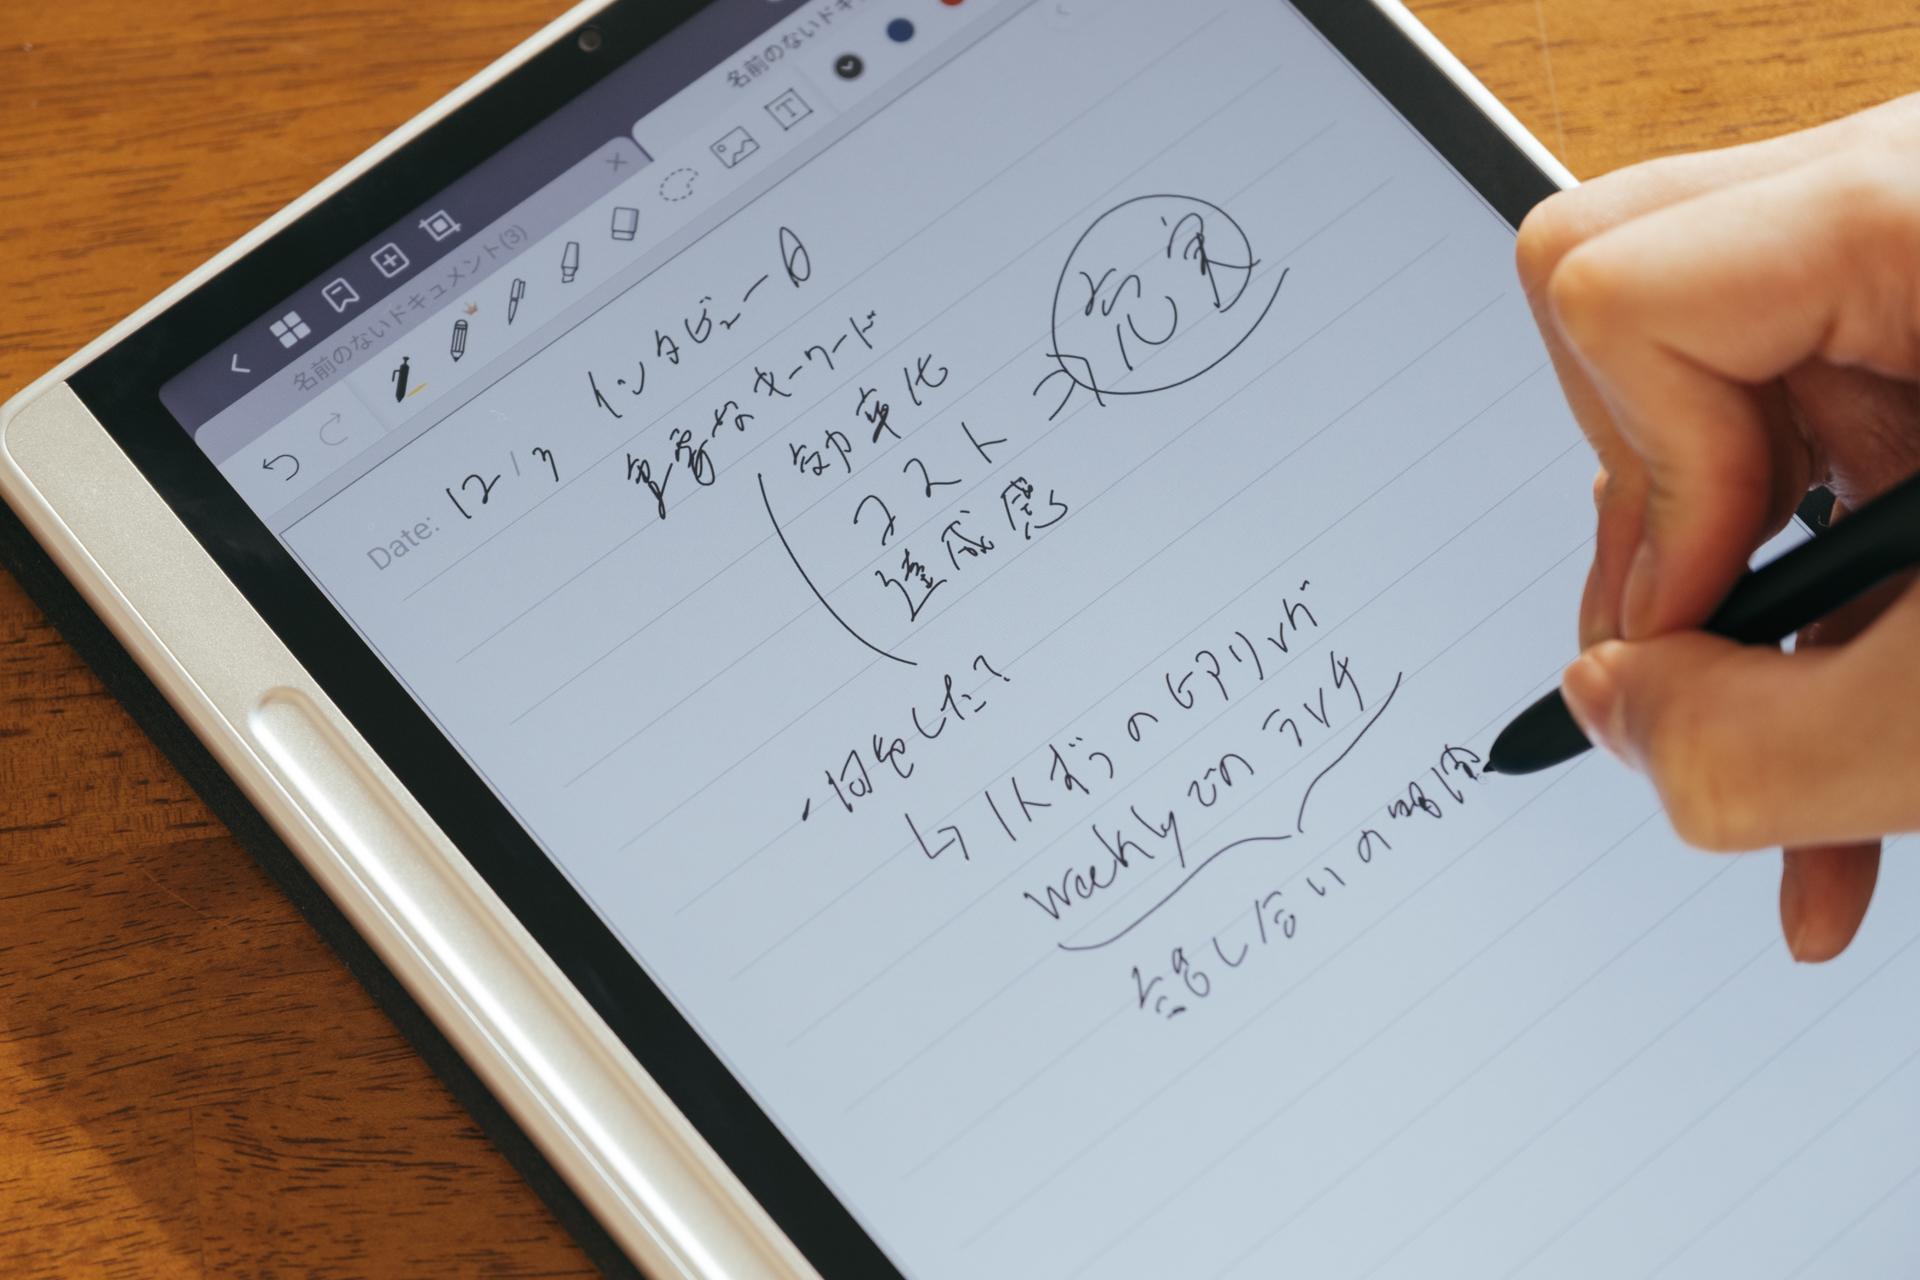 名前のないドキ
名前のないドキュメント(3)
Date: 12/7 インタビュー
重要なキーワード
効率化
コスト
達成感
充実
・何をした?
↳ 1人ずつのヒアリング
weeklyでの
話し合いの